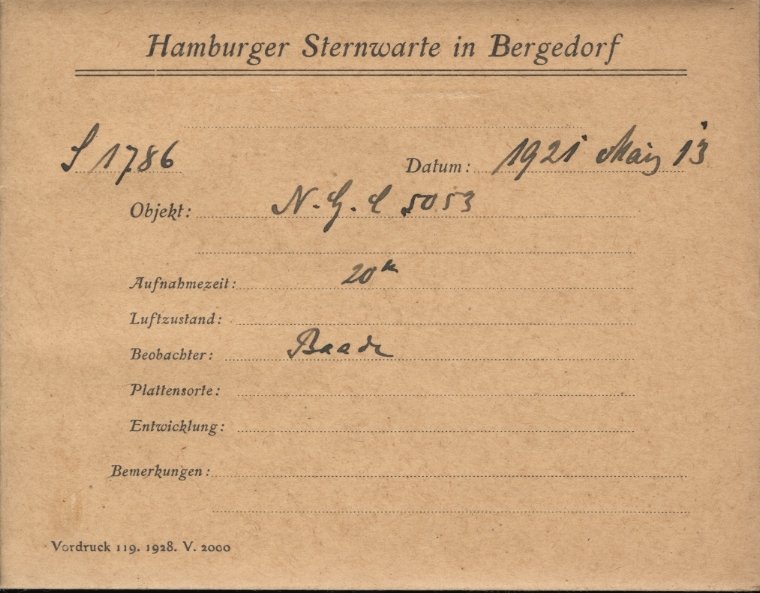 Hamburger Sternwarte in Bergedorf
S 1786
Datum: 1921 März 13
Objekt: N.G.C 5053
Aufnahmezeit: 20m
Luftzustand:
Beobachter: Baade
Plattensorte:
Entwicklung:
Bemerkungen:
Vordruck 119. 1928. V. 2000